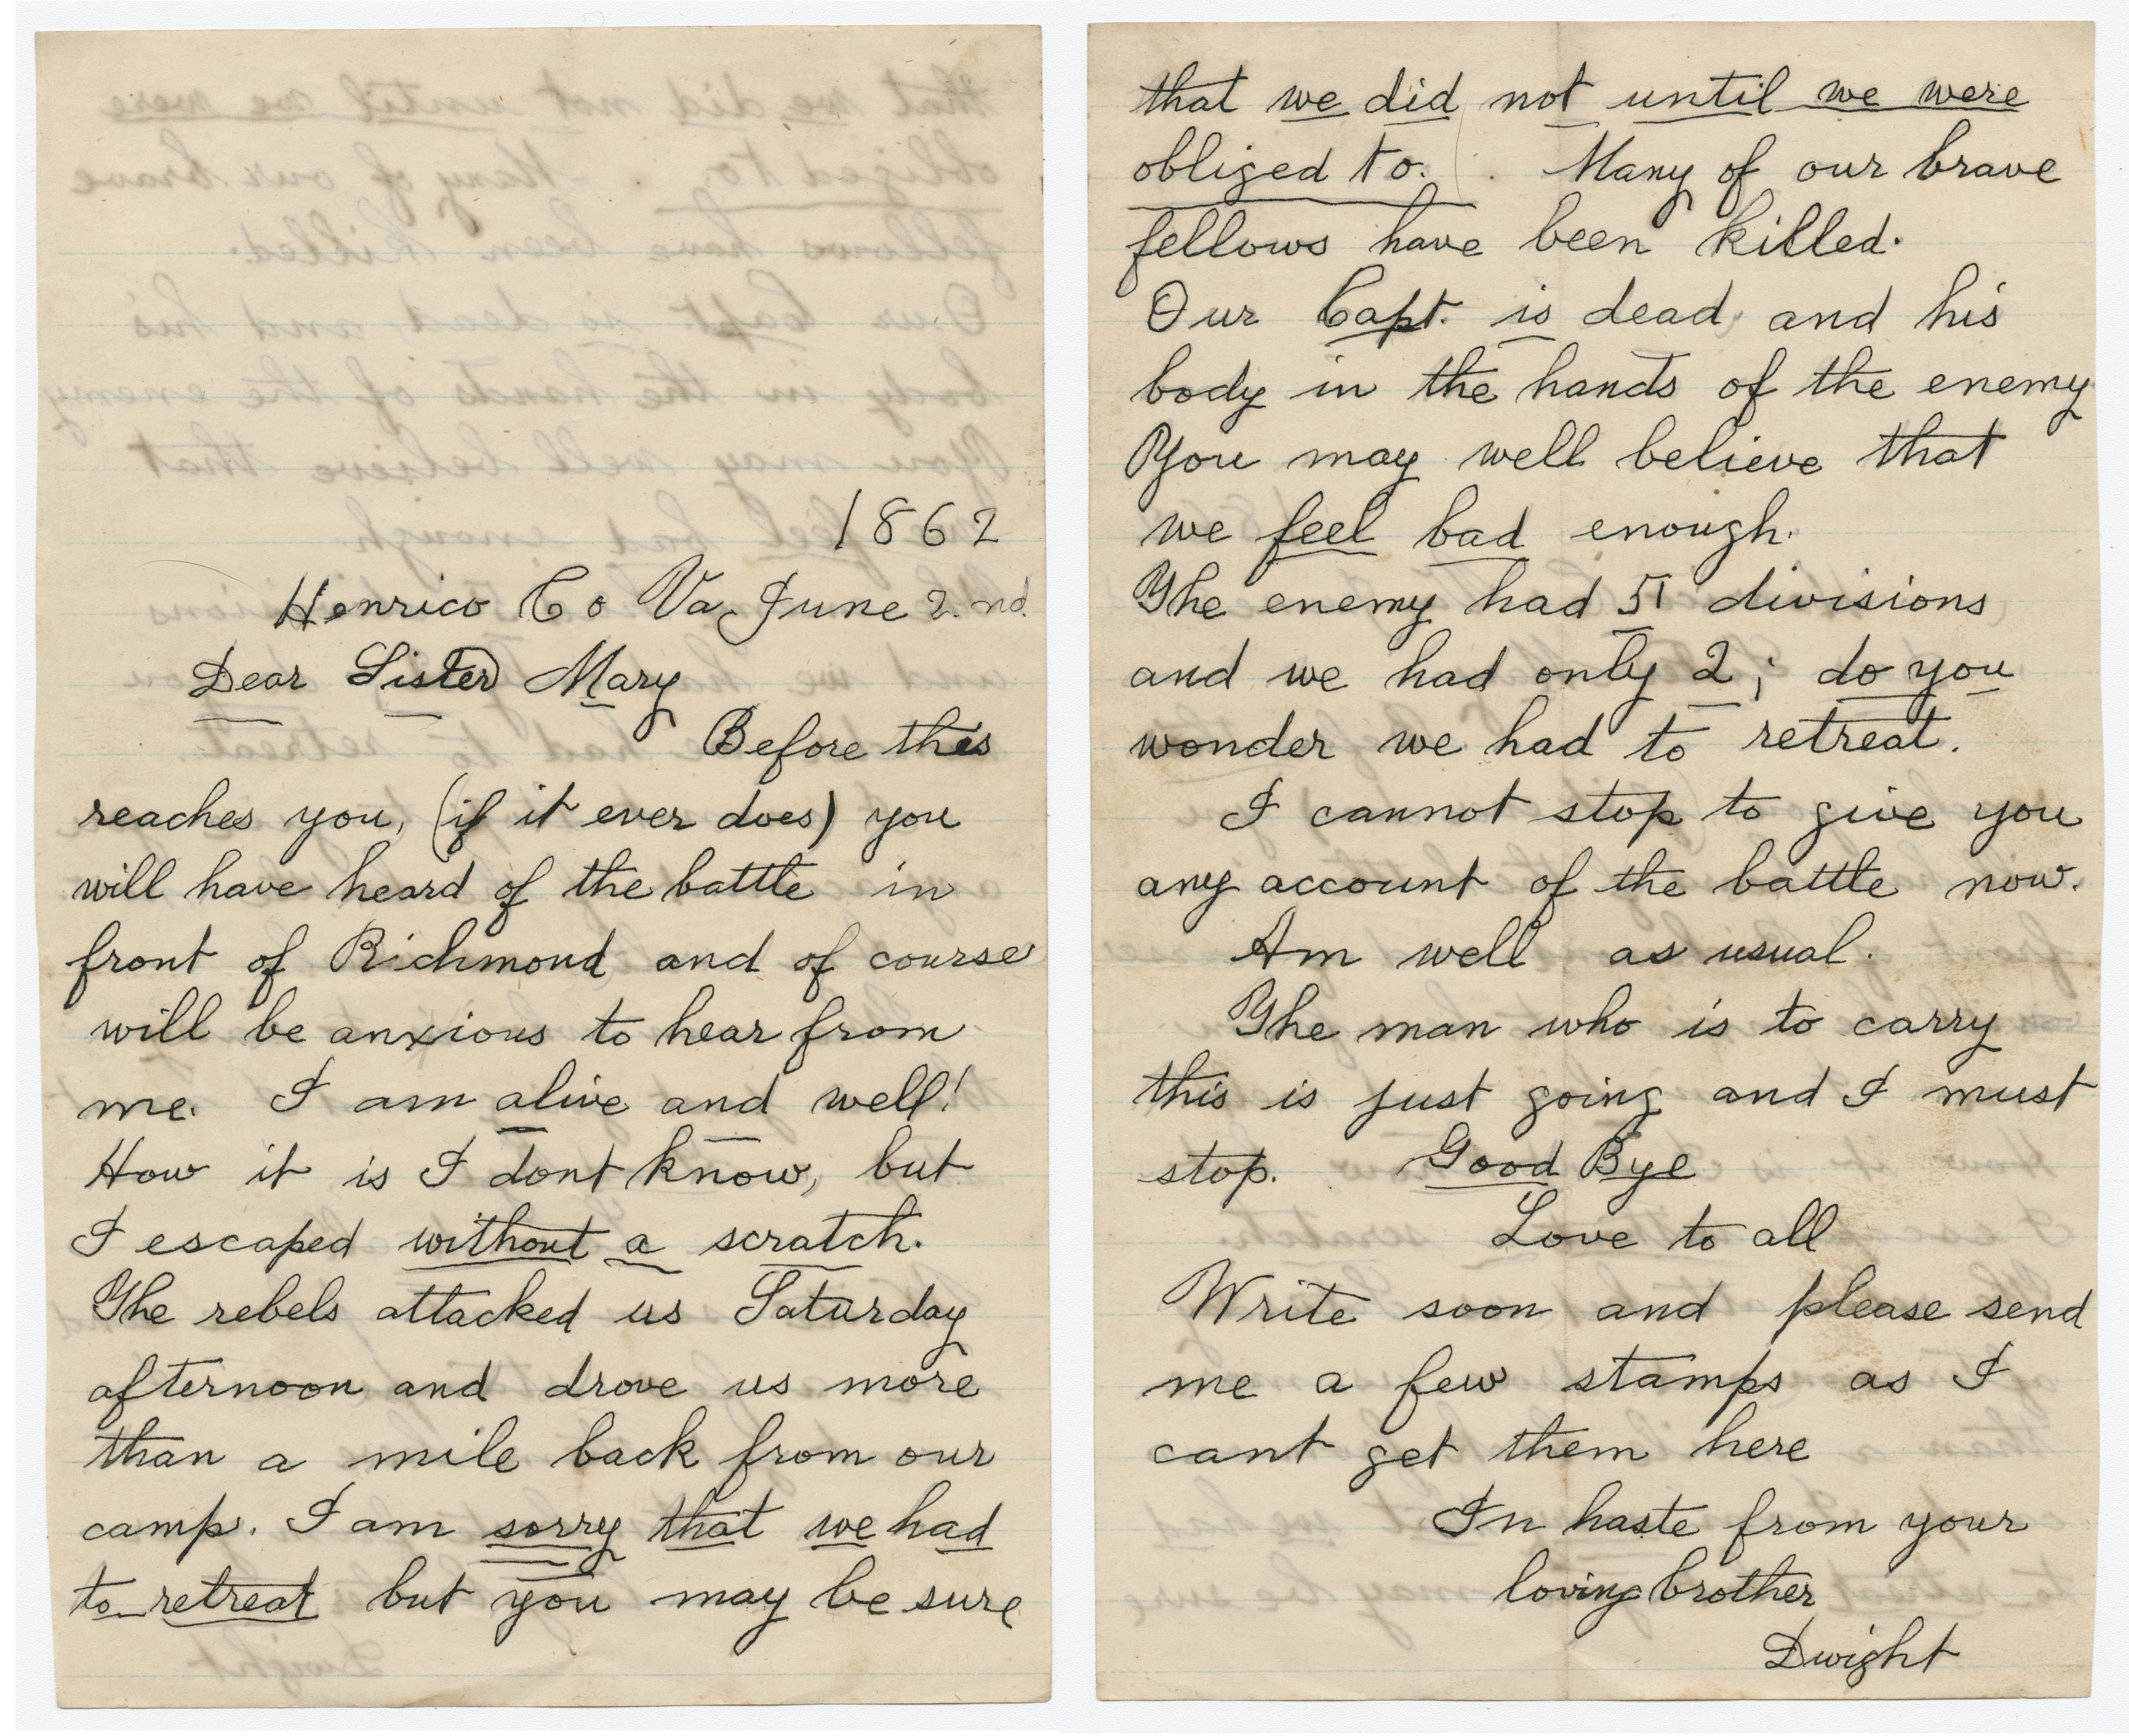 1862
Henrico Co Va June 2nd.
Dear Sister Mary
Before this
reaches you, (if it ever does) you
will have heard of the battle in
front of Richmond and of course
will be anxious to hear from
me. I am alive and well!
How it is I dont know, but
I escaped without a scratch.
The rebels attacked us Saturday
afternoon and drove us more
than a mile back from our
camp. I am sorry that we had
to retreat but you may be sure
that we did not until we were
obliged to. Many of our brave
fellows have been killed.
Our Capt. is dead and his
body in the hands of the enemy
You may well believe that
we feel bad enough.
The enemy had 5 divisions
and we had only 2; do you
wonder we had to retreat.
I cannot stop to give you
any account of the battle now.
Am well as usual.
The man who is to carry
this is just going and I must
stop. Good Bye
Love to all
Write soon and please send
me a few stamps as I
cant get them here
In haste from your
loving brother
Dwight